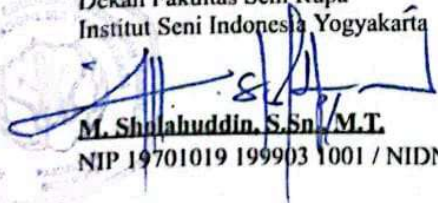 Dekan Fakultas Seni Rupa
Institut Seni Indonesia Yogyakarta
M. Sholahuddin, S.Sn., M.T.
NIP 19701019 199903 1001 / NIDN